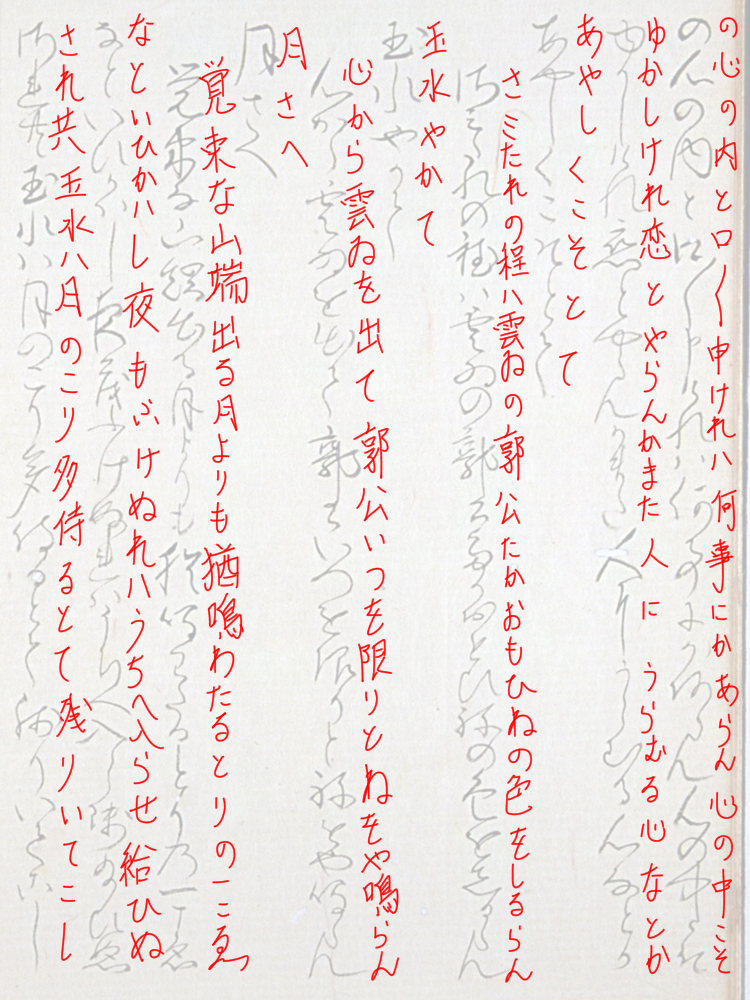 の心の内と口〳〵申けれハ何事にかあらん心の中こそ
ゆかしけれ恋とやらんかまた人にうらむる心なとか
あやしくこそとて
さミたれの程ハ雲ゐの郭公たかおもひねの色をしるらん
玉水やかて
心から雲ゐを出て郭公いつを限りとねをや鳴らん
月さへ
覚束な山端出る月よりも猶鳴わたるとりの一こゑ
なといひかハし夜もふけぬれハうちへ入らせ給ひぬ
され共玉水ハ月のこり多侍るとて残りいてこし